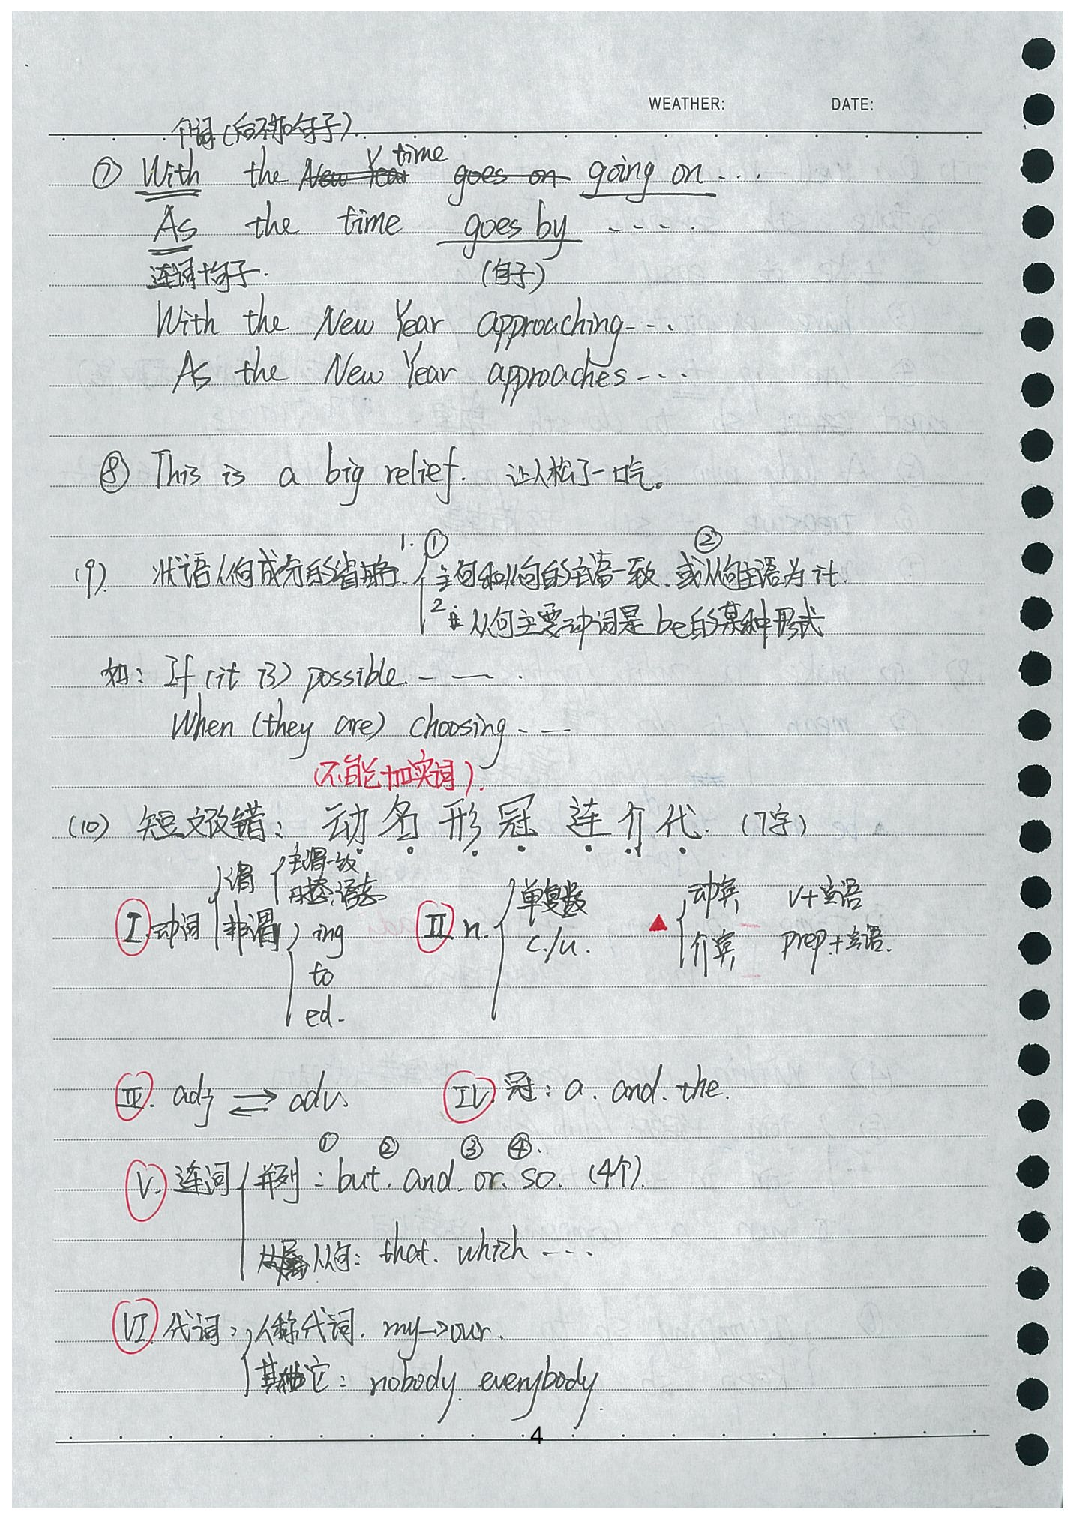 WEATHER: DATE:
介词(后不加句子).
⑦ With the New Year time goes on going on ...
As the time goes by ....
连词+句子. (句子)
With the New Year approaching ...
As the New Year approaches ...
⑧ This is a big relief. 让人松了一口气。
(9) 状语从句成分的省略. 1. ① 主句和从句的主语一致. ② 或从句主语为it.
2 从句主要动词是be的某种形式
如: If (it is) possible. — —.
When (they are) choosing. - —
(不能加实词).
(10) 短文改错: 动名形冠连介代. (7字)
I 动词 谓 主谓一致 时态、语态
非谓 ing to ed.
II n. 单复数 C./U.
▲ 动宾 v+宾语
介宾 prep.+宾语.
III. adj ⇌ adv.
IV. 冠: a. and. the.
① ② ③ ④.
V. 连词 并列: but. and. or. so. (4个)
从属 从句: that. which ...
VI 代词: 人称代词. my→our.
其它: nobody. everybody
4